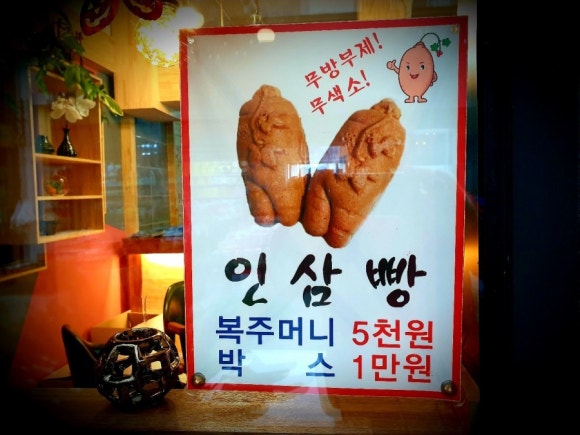 무방부제!
무색소!
인삼빵
복주머니 5천원
박스 1만원